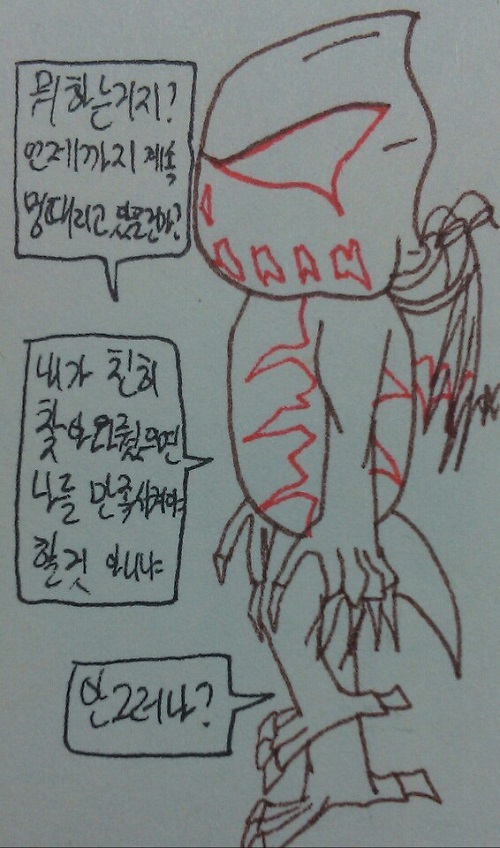 뭐 하는거지?
언제까지 계속
멍때리고 있을건가?
내가 친히
찾아와줬으면
나를 만족시켜야
할것 아니냐
안그러냐?